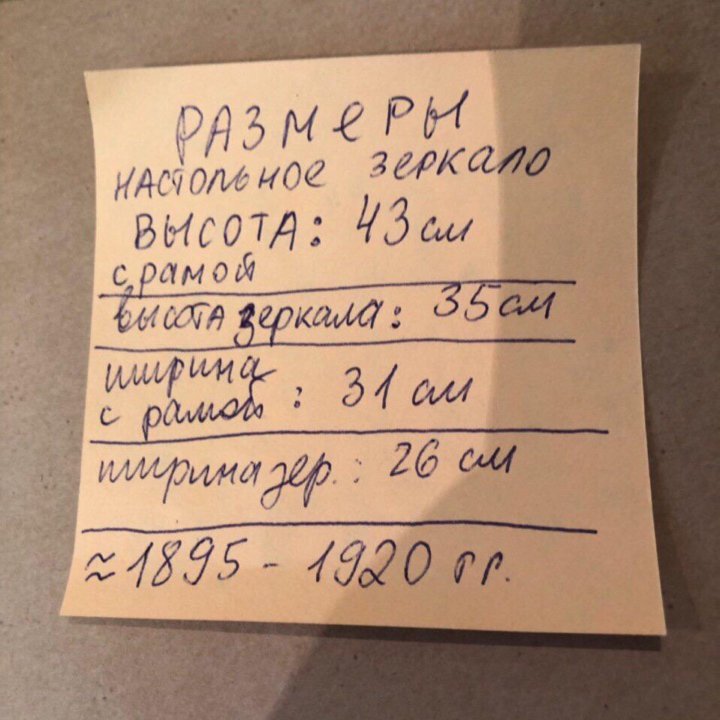 РАЗМЕРЫ
настольное зеркало
ВЫСОТА: 43 см
с рамой
высота зеркала: 35 см
ширина
с рамой : 31 см
ширина зер. : 26 см
≈1895 - 1920 гг.